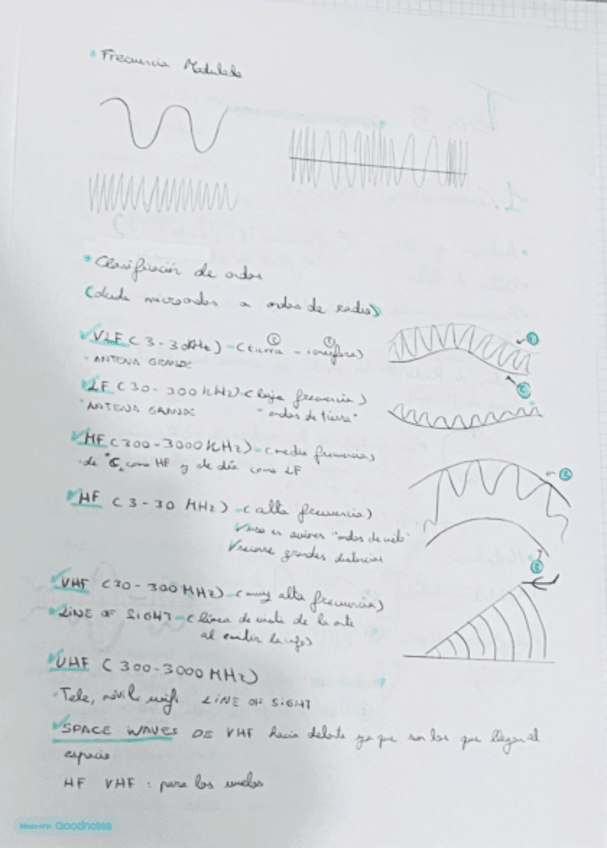 • Frecuencia Modulada
• Clasificación de ondas
(desde microondas a ondas de radio)
VLF (3-30kHz) - (tierra - ionosfera)
② ①
①
②
· ANTENA GRANDE
LF (30-300 KHz) - (baja frecuencia)
· ANTENA GRANDE "ondas de tierra"
MF (300-3000 KHz) - (media frecuencia)
como HF y de día como LF
HF (3-30 MHz) - (alta frecuencia)
uso en aviones "ondas de cielo"
recorre grandes distancias
VHF (30-300 MHz) - (muy alta frecuencia)
LINE OF SIGHT - (línea de vista de la
al emitir la info)
UHF (300-3000 MHz)
· Tele, móvil, wifi LINE OF SIGHT
SPACE WAVES DE VHF hacia delante ya que son las que llegan al
espacio
HF VHF : para los vuelos
Made with Goodnotes